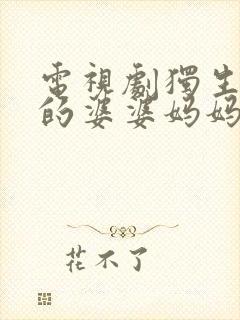 電視劇獨生
的婆婆媽媽
花不了